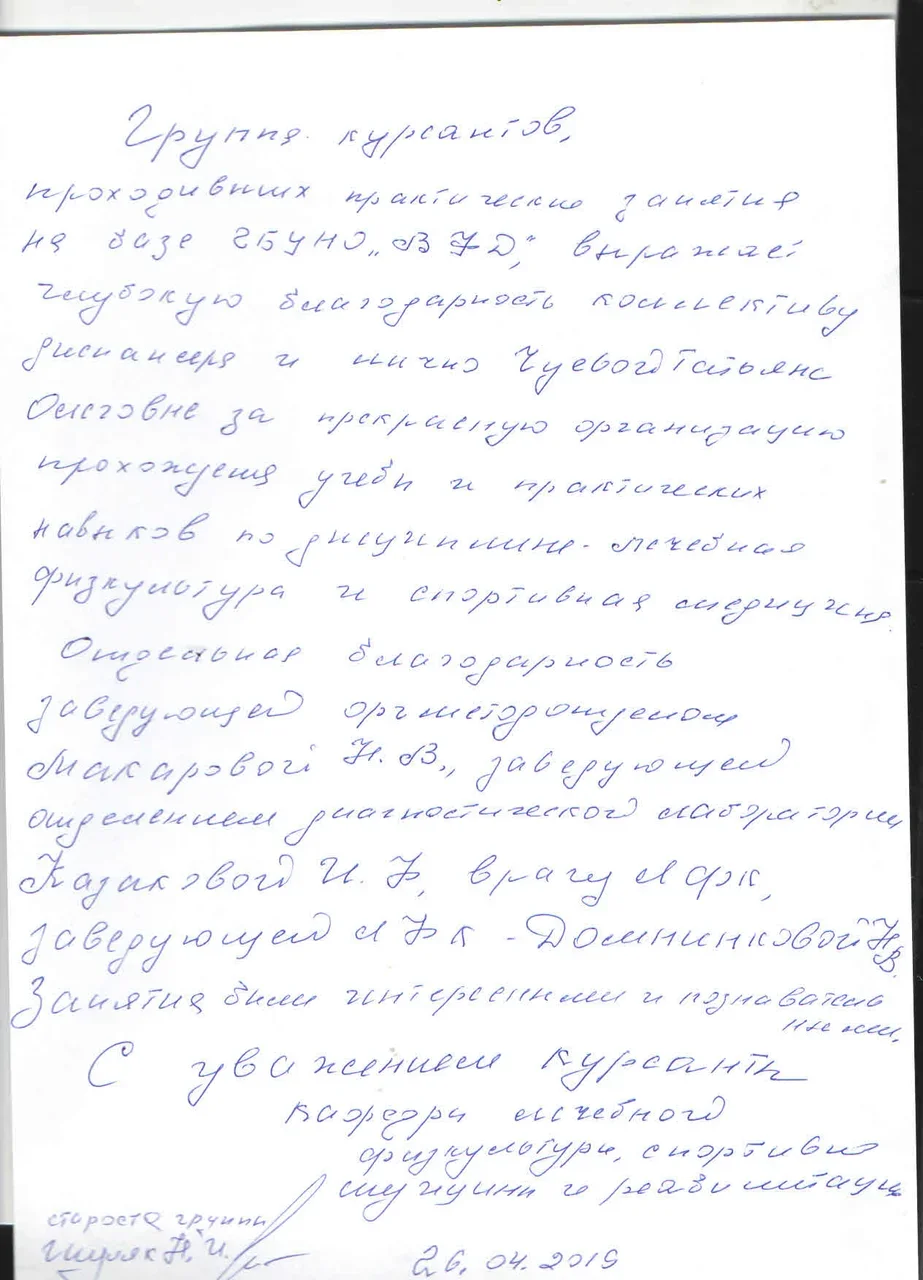 Группа курсантов,
проходивших практические занятия
на базе ГБУНО „ВФД", выражает
глубокую благодарность коллективу
диспансера и лично Чуевой Татьяне
Олеговне за прекрасную организацию
прохождения учебы и практических
навыков по дисциплине - лечебная
физкультура и спортивная медицина.
Отдельная благодарность
заведующей оргметодотделом
Макаровой Н.В., заведующей
отделением диагностической лаборатории
Казаковой И.Ф, врачу ЛФК,
заведующей ЛФК - Домнинковой Н.В.
Занятия были интересными и познаватель
ными.
С уважением курсанты
кафедры лечебного
физкультуры, спортивной
медицины и реабилитации
староста группы
Н.И.
26.04.2019